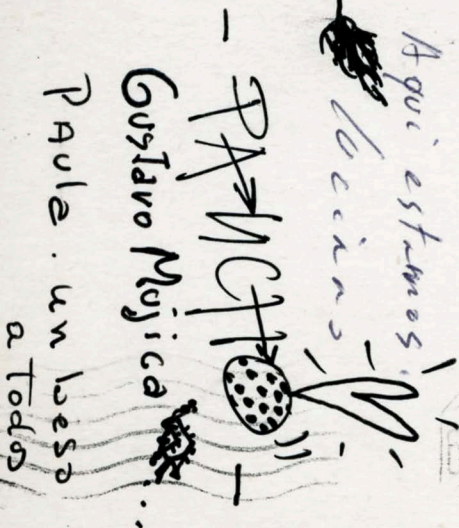 Aqui estamos:
- PANCH
Gustavo Mujica...
PAula. un beso
a Todos